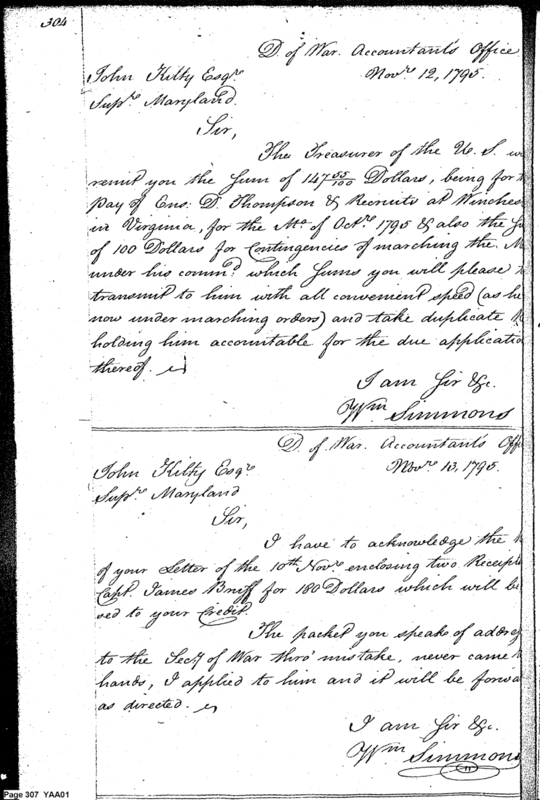 304
D. of War. Accountant's Office
Nov.r 12, 1795.
John Kilty Esqr.
Supr. Maryland.
Sir,
The Treasurer of the U. S. w
remit you the Sum of 147 55/100 Dollars, being for t
pay of Ens: D. Thompson & Recruits at Winches
in Virginia, for the Mo. of Octr. 1795 & also the Su
of 100 Dollars for Contingencies of marching the. M
under his commd. which Sums you will please
transmit to him with all convenient speed (as he
now under marching orders) and take duplicate
holding him accountable for the due applicatio
thereof.
I am Sir &c.
Wm Simmons
D. of War. Accountant's Offi
Novr. 13, 1795.
John Kilty Esqr.
Supr. Maryland
Sir,
I have to acknowledge the
of your Letter of the 10th Novr. enclosing two Receipts
Capt. James Bruff for 180 Dollars which will be
sed to your Credit.
The packet you speak of addre
to the Secy. of War thro' mistake, never came
hands, I applied to him and it will be forwa
as directed.
I am Sir &c.
Wm Simmons
Page 307 YAA01